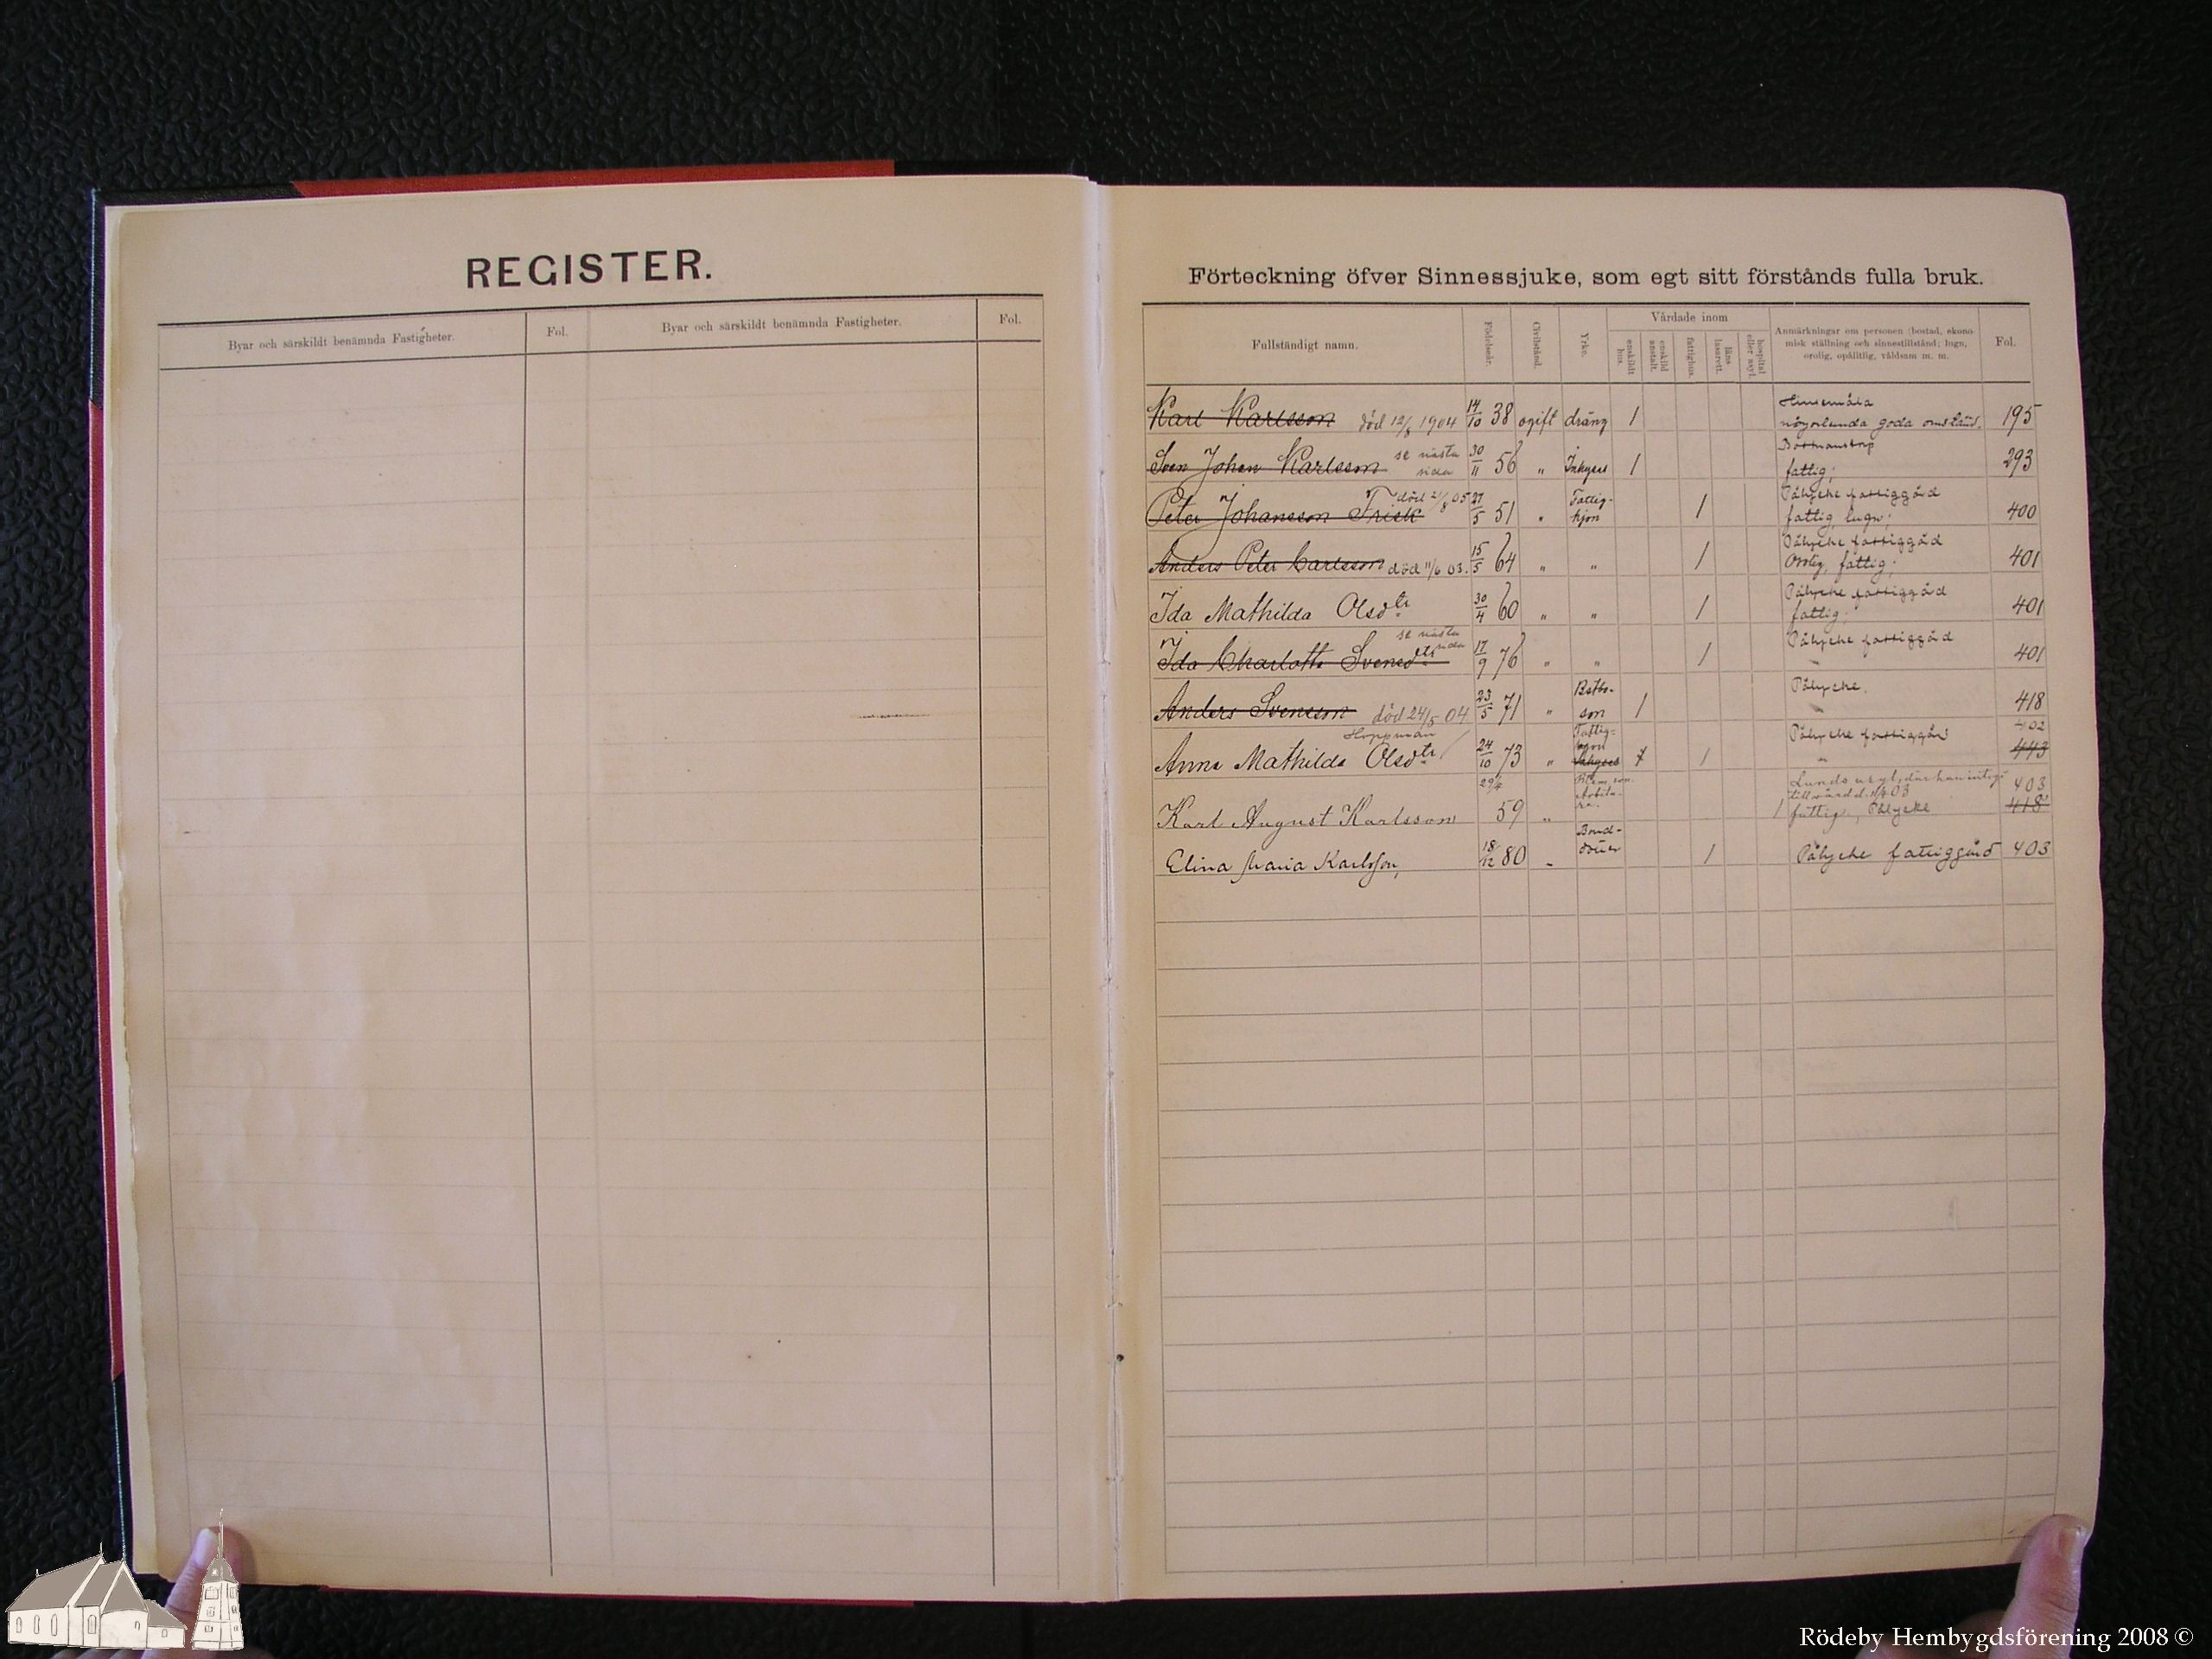 REGISTER.
Byar och särskildt benämnda Fastigheter.
Fol.
Byar och särskildt benämnda Fastigheter.
Fol.
Förteckning öfver Sinnessjuke, som egt sitt förstånds fulla bruk.
Fullständigt namn.
Födelseår.
Civilstånd.
Yrke.
Vårdade inom
enskildt hus.
enskild anstalt.
fattighus.
läns lasarett.
hospital eller asyl.
Anmärkningar om personen (bostad, ekono-
misk ställning och sinnestillstånd; lugn,
orolig, opålitlig, våldsam m. m.
Fol.
Karl Karlsson död 12/8 1904 14/10 38 ogift dräng 1 någorlunda goda omständ. 195
Sven Johan Karlsson se nästa sida 30/11 56 " Inhyses 1 fattig; 293
Peter Johansson Frisk död 2/8 05 27/5 51 " Fattig-hjon 1 Påhycke fattiggård fattig, lugn; 400
Anders Peter Carlsson död 11/6 03. 15/5 64 " " 1 Påhycke fattiggård Orolig, fattig; 401
Ida Mathilda Olsdtr 30/4 60 " " 1 Påhycke fattiggård fattig; 401
Ida Charlotta Svensdtr se nästa sida 17/9 76 " " 1 Påhycke fattiggård " 401
Anders Svensson död 24/5 04 23/5 71 " son 1 Påhycke. " 418
Anna Mathilda Olsdtr Hoppman 24/10 73 " Fattig-hjon Inhyses 1 1 Påhycke fattiggård " 402 443
Karl August Karlsson 59 " 1 Lunds asyl, fattig, Påhycke 403 418
Elina Maria Karlsson, 18/12 80 " 1 Påhycke fattiggård 403
Rödeby Hembygdsförening 2008 ©